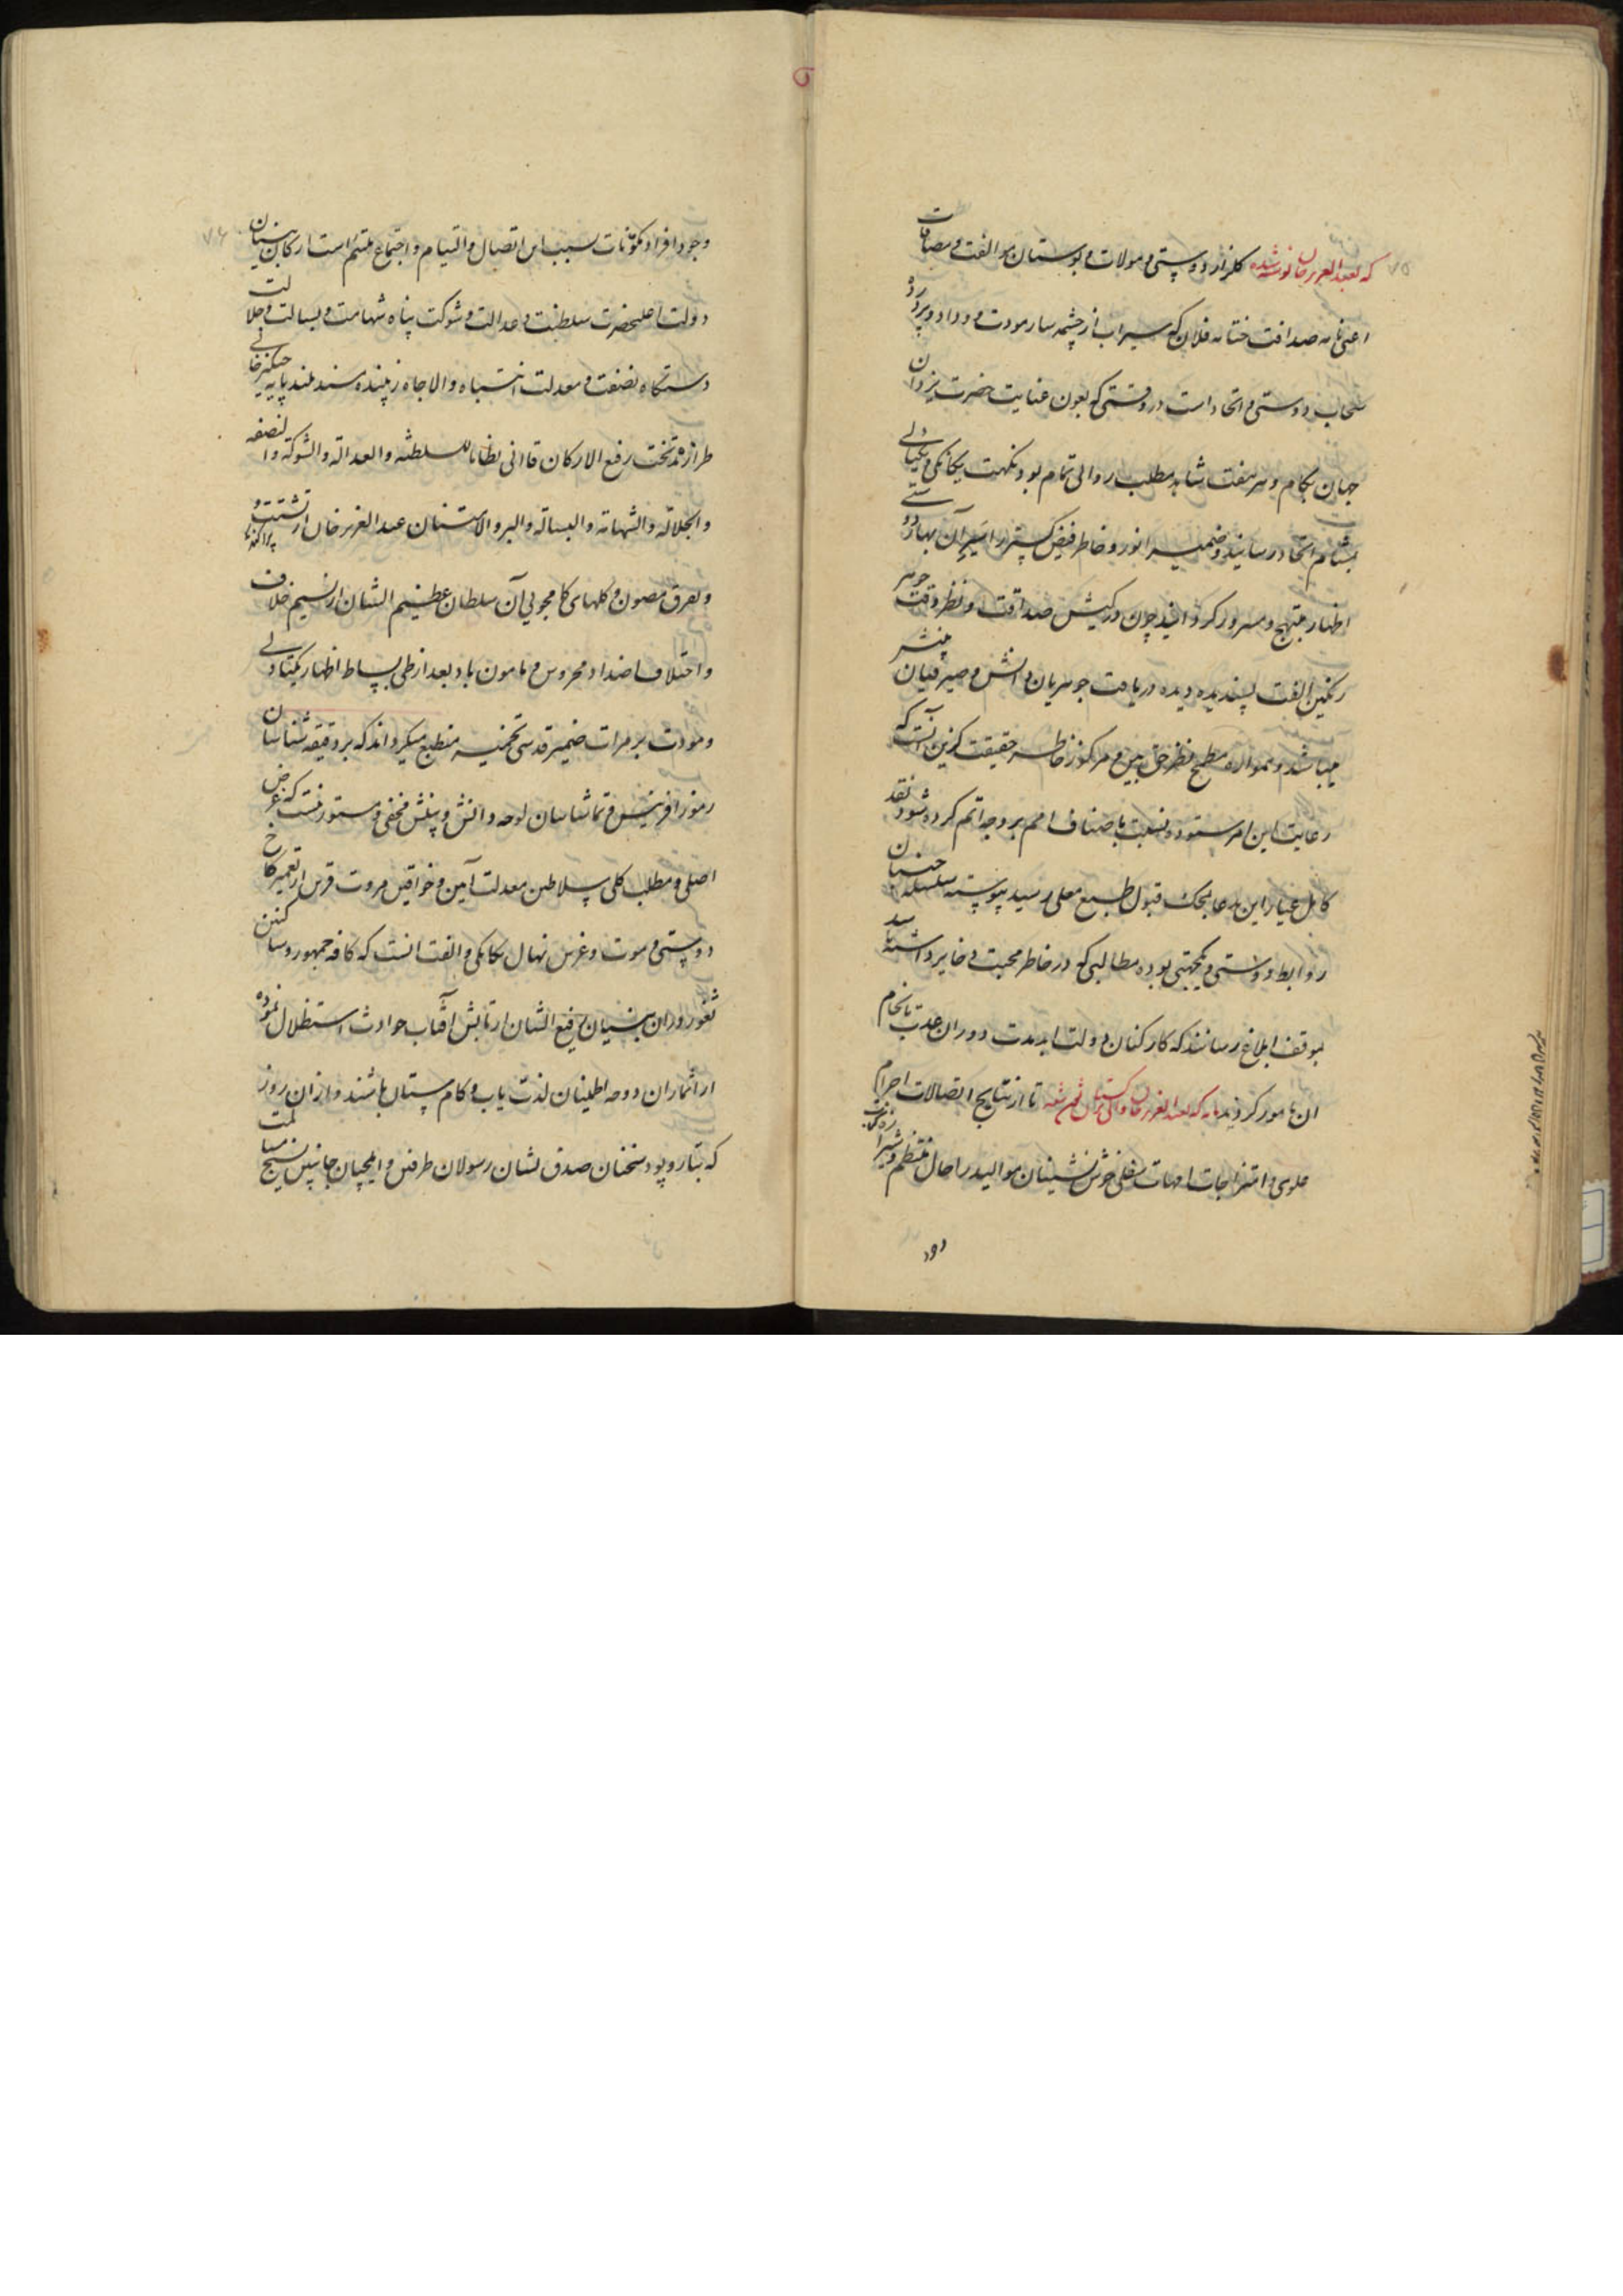 که بعبدالعزیز خان نوشته شده گلزار دوستی و موالات و بوستان موالفت و مصافات
اعنی نامه صداقت ختامه فلان که سیراب از چشمه سار مودت و وداد و پرورده
سحاب دوستی و اتحاد است در وقتی که بعون عنایت حضرت یزدان
جهان بکام و هر هفت شاهد مطلب روائی تمام بود نکهت یگانگی و یکتادلی
بمشام اتحاد رسانید و ضمیر انور و خاطر فیض گستر را سیر آن بهار دوستی
اظهار مبتهج و مسرور گردانید چون در کیش صداقت و نظر دقت جوهر
رنگین الفت پسندیده دیده دریافت جوهریان دانش و صیرفیان بینش
میباشد و همواره مطمح نظر حق بین و مرکوز خاطر حقیقت گزین آنست که
رعایت این امر ستوده نسبت باصناف امم بر وجه اتم کرده شود نقد
کامل عیار این مدعا بمحک قبول طبع معلی رسید پیوسته سلسله جنبان
روابط دوستی و یکجهتی بوده مطالبی که در خاطر محبت ذخایر داشته باشند
بموقف ابلاغ رسانند که کارکنان دولت ابدمدت دوران عدت بانجام
ان مامور گردند نامه که بعبدالعزیز خان والی ترکستان قلمی شده تا از نتایج اتصالات اجرام
علوی و امتزاجات امهات سفلی خوش نشینان موالید را حال منتظم و شیرازه
وجود
وجود افراد مکونات بسبب این اتصال و التیام و اجتماع ملتئم است ارکان بنیان
دولت اعلیحضرت سلطنت و عدالت و شوکت پناه شهامت و بسالت و جلالت
دستگاه نصفت و معدلت انتباه والاجاه زیبنده مسند بلند پایه چنگیزخانی
طرازنده تخت رفیع الارکان قاآنی نظاما للسلطنه والعدالة والشوکة والنصفه
والجلالة والشهامة والبسالة والبر والامتنان عبدالعزیز خان از تشتت و پراکندگی
و تفرق مصون و گلهای کامجویی آن سلطان عظیم الشان از نسیم خلاف
و اختلاف اضداد محروس و مامون باد بعد از طی بساط اظهار یکتادلی
و مودت بر مرات ضمیر قدسی تخمیر منطبع میگرداند که بر دقیقه شناسان
رموز آفرینش و تماشاییان لوحه دانش و بینش مخفی و مستور نیست که غرض
اصلی و مطلب کلی سلاطین معدلت آیین و خواقین مروت قرین از تعمیر کاخ
دوستی و مودت و غرس نهال یگانگی و الفت آنست که کافه جمهور و ساکنین
ثغور در آن بنیان رفیع الشان از تابش آفتاب حوادث استظلال نموده
از اثمار آن دوحه اطمینان لذت یاب و کام ستان باشند و از آن روز
که بتار و پود سخنان صدق نشان رسولان طرفین و ایلچیان جانبین نسیج مسالمت